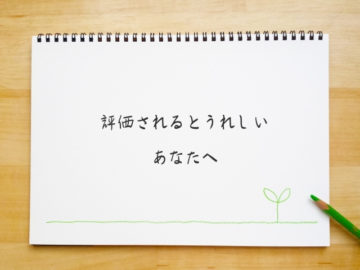 評価されるとうれしい
あなたへ